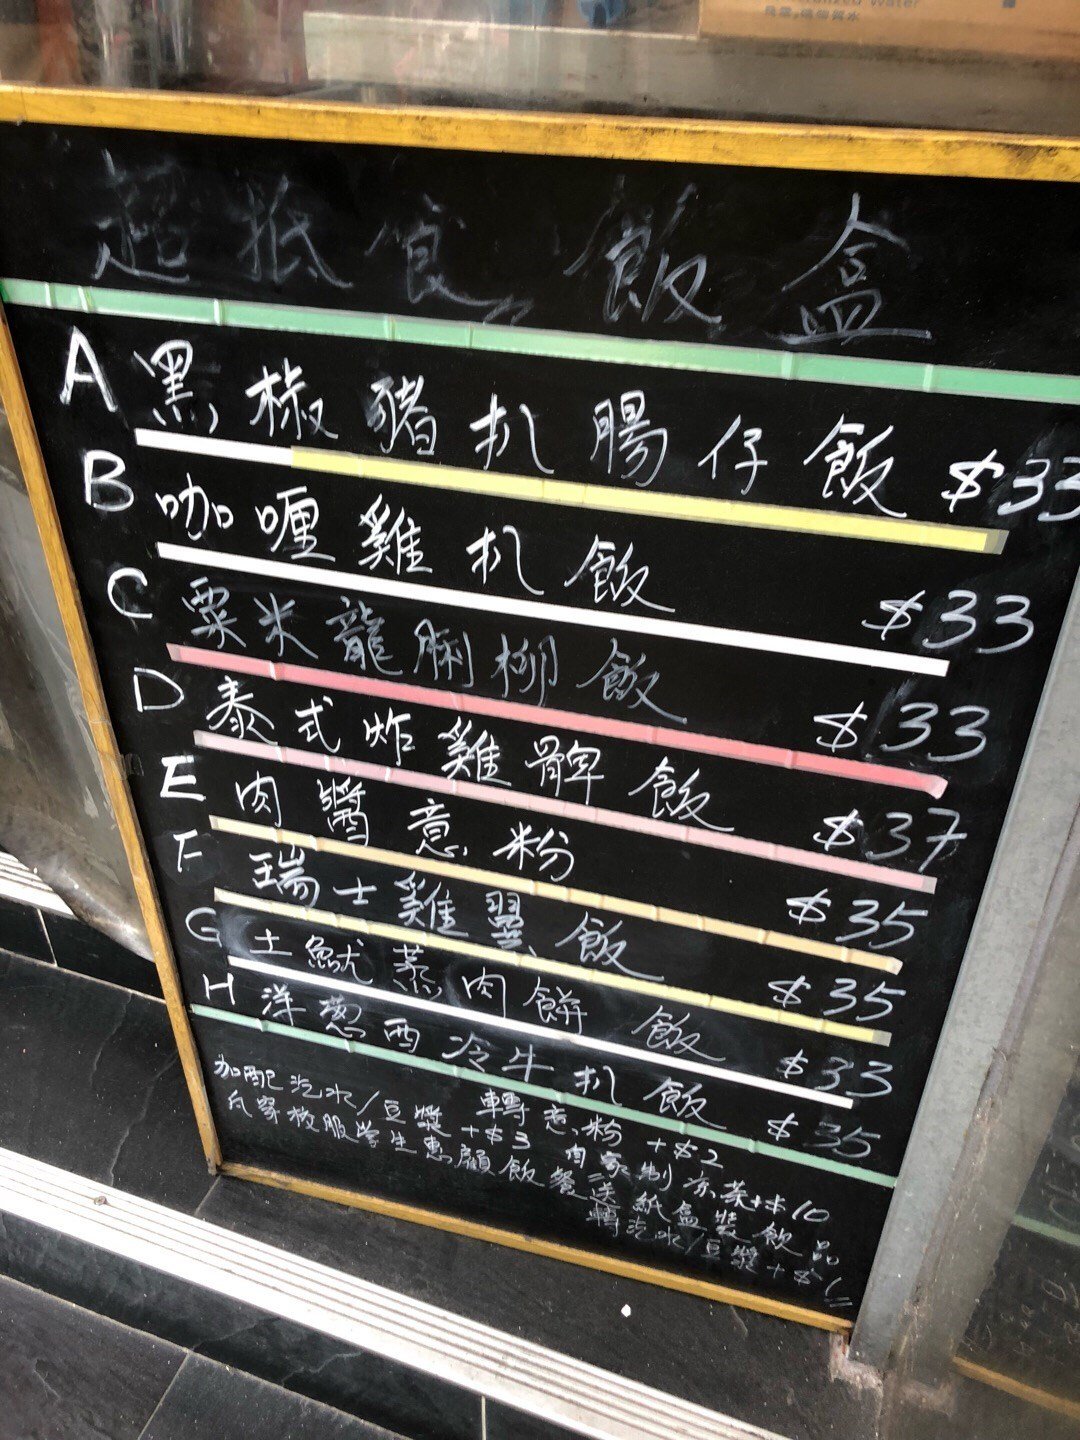 超抵食飯盒
A 黑椒豬扒腸仔飯 $33
B 咖喱雞扒飯 $33
C 粟米龍脷柳飯 $33
D 泰式炸雞髀飯 $37
E 肉醬意粉 $35
F 瑞士雞翼飯 $35
G 土魷蒸肉餅飯 $33
H 洋葱西冷牛扒飯 $35
加配汽水/豆漿 +$3 轉意粉 +$2
凡穿校服學生惠顧飯餐送紙盒裝飲品
轉汽水/豆漿+$1